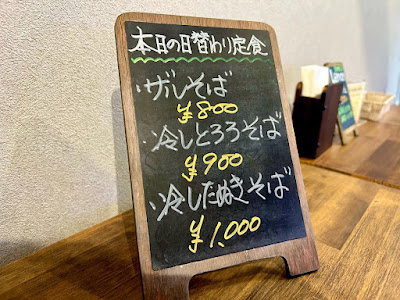 本日の日替わり定食
・ザルそば
¥800
・冷しとろろそば
¥900
・冷したぬきそば
¥1,000